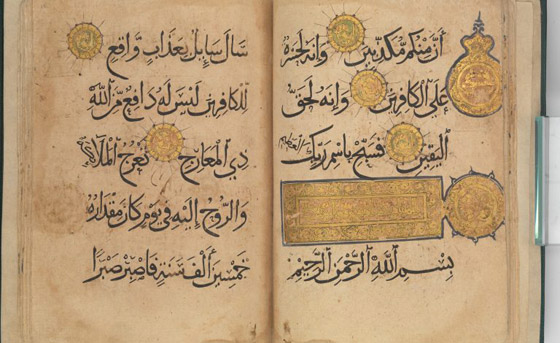 أَنَّ مِنكُم مُّكَذِّبِينَ وَإِنَّهُ لَحَسْرَةٌ
عَلَى الْكَافِرِينَ وَإِنَّهُ لَحَقُّ
الْيَقِينِ فَسَبِّحْ بِاسْمِ رَبِّكَ الْعَظِيمِ
بِسْمِ اللَّهِ الرَّحْمَٰنِ الرَّحِيمِ
سَأَلَ سَائِلٌ بِعَذَابٍ وَاقِعٍ
لِلْكَافِرِينَ لَيْسَ لَهُ دَافِعٌ مِّنَ اللَّهِ
ذِي الْمَعَارِجِ تَعْرُجُ الْمَلَائِكَةُ
وَالرُّوحُ إِلَيْهِ فِي يَوْمٍ كَانَ مِقْدَارُهُ
خَمْسِينَ أَلْفَ سَنَةٍ فَاصْبِرْ صَبْرًا